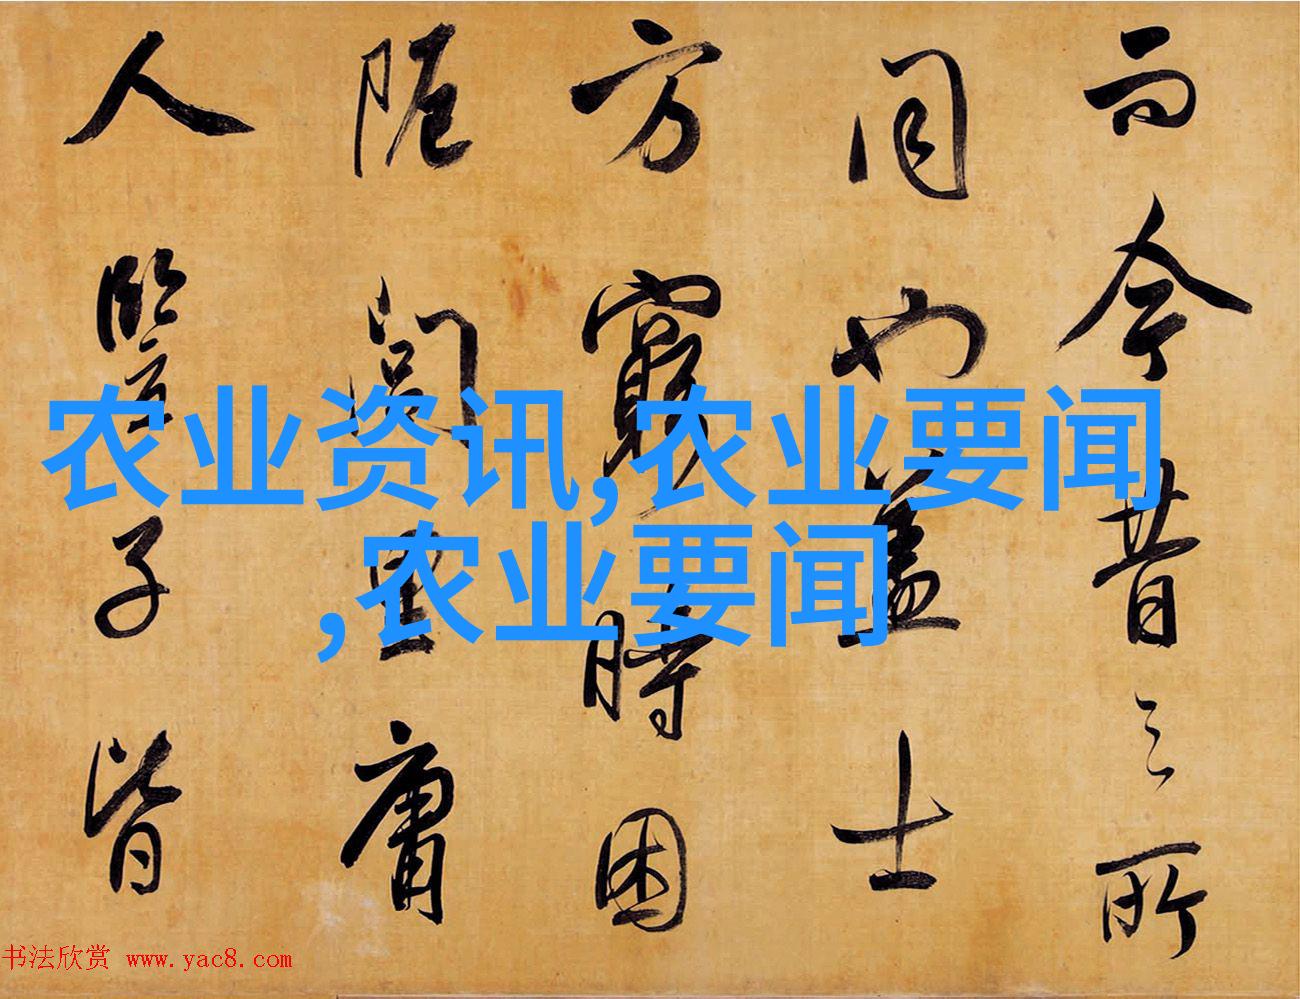 而今昔之所
同也蓋士
方窮時困
阨閭里庸
人豎子皆
农业资讯,农业要闻
,农业要闻
书法欣赏 www.yac8.com